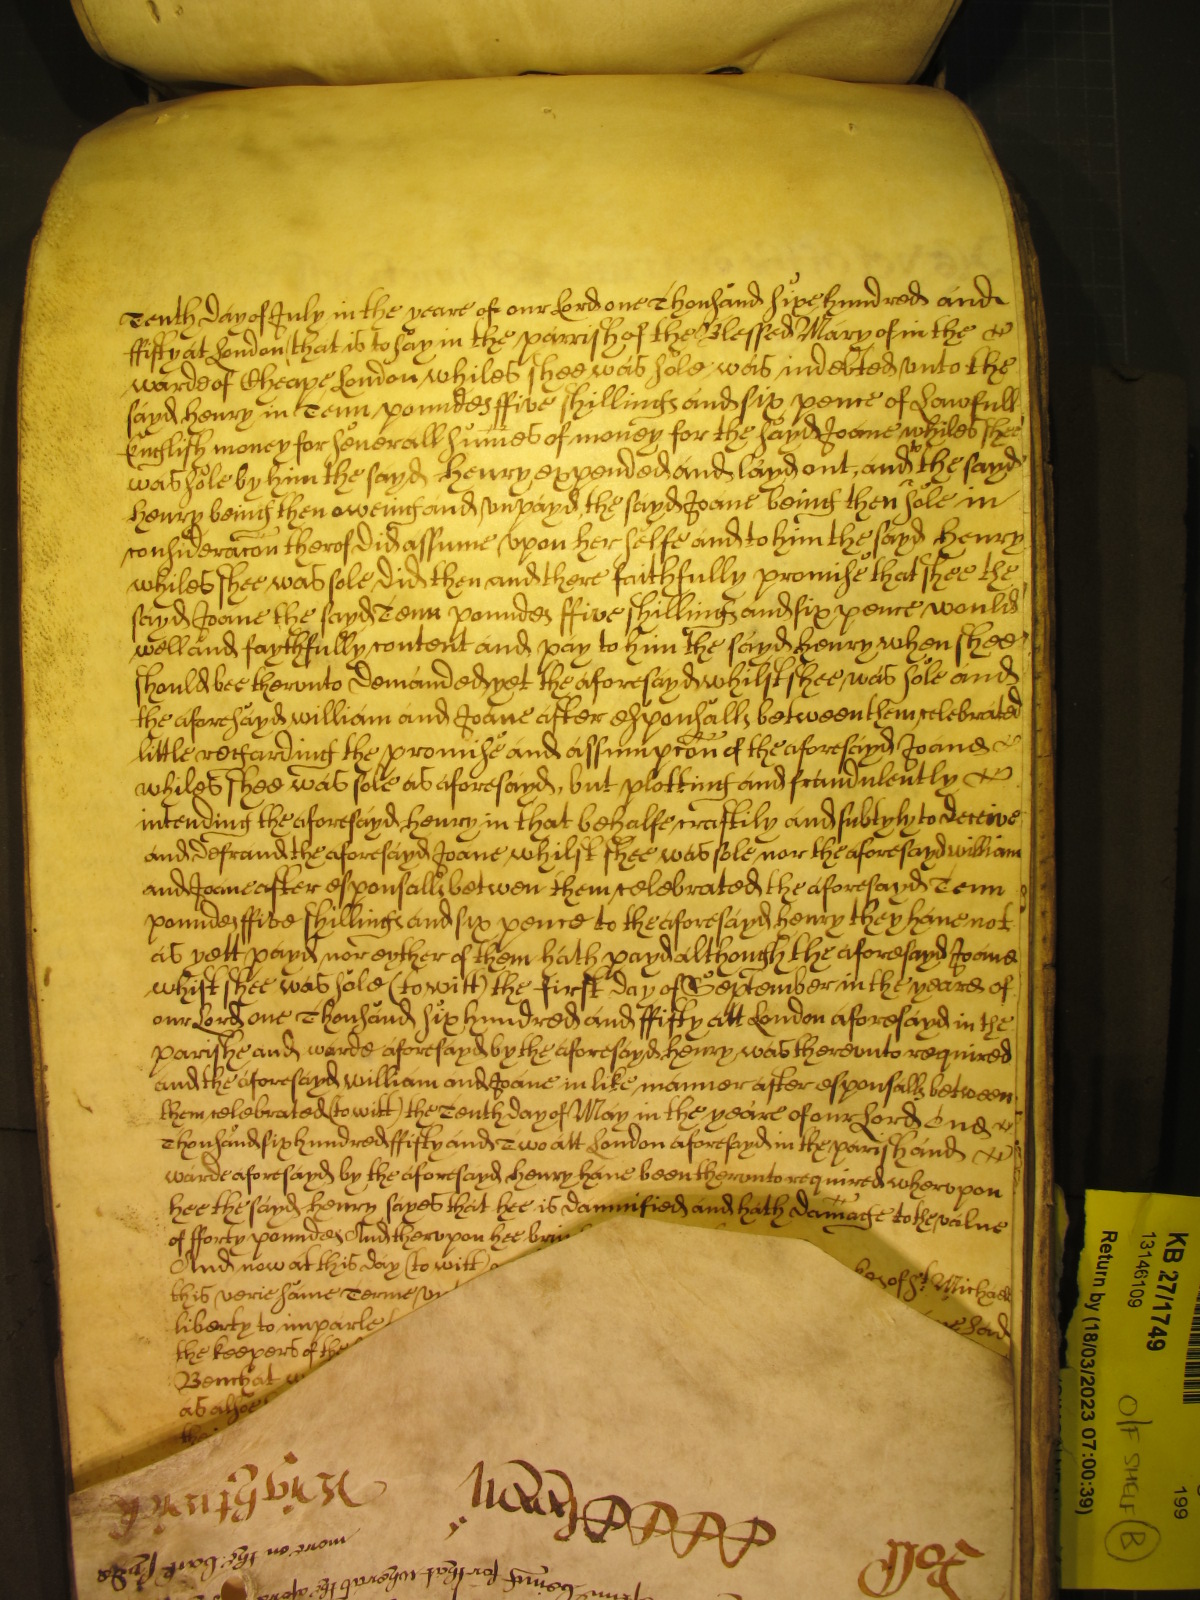 Tenth day of July in the yeare of our Lord one Thousand sixe hundred and
ffifty at London that is to say in the parrish of the Blessed Mary of in the
warde of Cheape London whiles shee was sole was indebted unto the
sayd Henry in Tenn poundes ffive shillings and six pence of Lawfull
English money for severall summes of money for the sayd Joane whiles shee
was sole by him the sayd Henry expended and layd out, and to the sayd
Henry being then oweing and unpayd, the sayd Joane being then sole in
consideracon therof did assume upon her selfe and to him the sayd Henry
whiles shee was sole did then and there faithfully promise that shee the
sayd Joane the sayd Tenn poundes ffive shillings and six pence would
well and faythfully content and pay to him the sayd Henry when shee
should bee therunto demanded, yet the aforesayd whilst shee was sole and
the aforesayd William and Joane after esponsalls between them celebrated
little regarding the promise and assumpcon of the aforesayd Joane
whiles shee was sole as aforesayd, but plotting and fraudulently
intending the aforesayd Henry in that behalfe craftily and subtyly to deceive
and defraud the aforesayd Joane whilst shee was sole nor the aforesayd William
and Joane after esponsalls betwen them celebrated the aforesayd Tenn
poundes ffive shillings and six pence to the aforesayd Henry they have not
as yett payd nor eyther of them hath payd although the aforesayd Joane
whilst shee was sole (to witt) the first day of September in the yeare of
our Lord one Thousand six hundred and ffifty att London aforesayd in the
parishe and warde aforesayd by the aforesayd Henry was thereunto required
and the aforesayd William and Joane in like manner after esponsalls between
them celebrated (to witt) the Tenth day of May in the yeare of our Lord One
Thousand six hundred ffifty and Two att London aforesayd in the parish and
warde aforesayd by the aforesayd Henry have been therunto required wherupon
hee the sayd Henry sayes that hee is damnified and hath damage to the value
of fforty poundes And therupon hee
And now at this day (to witt)
of St Michael
this verie same Terme
liberty to imparle
the keepers of the
Bench at
as alsoe
KB 27/1749
13146109
Return by (18/03/2023 07:00:39)
199
O/F SHELF B
more on the